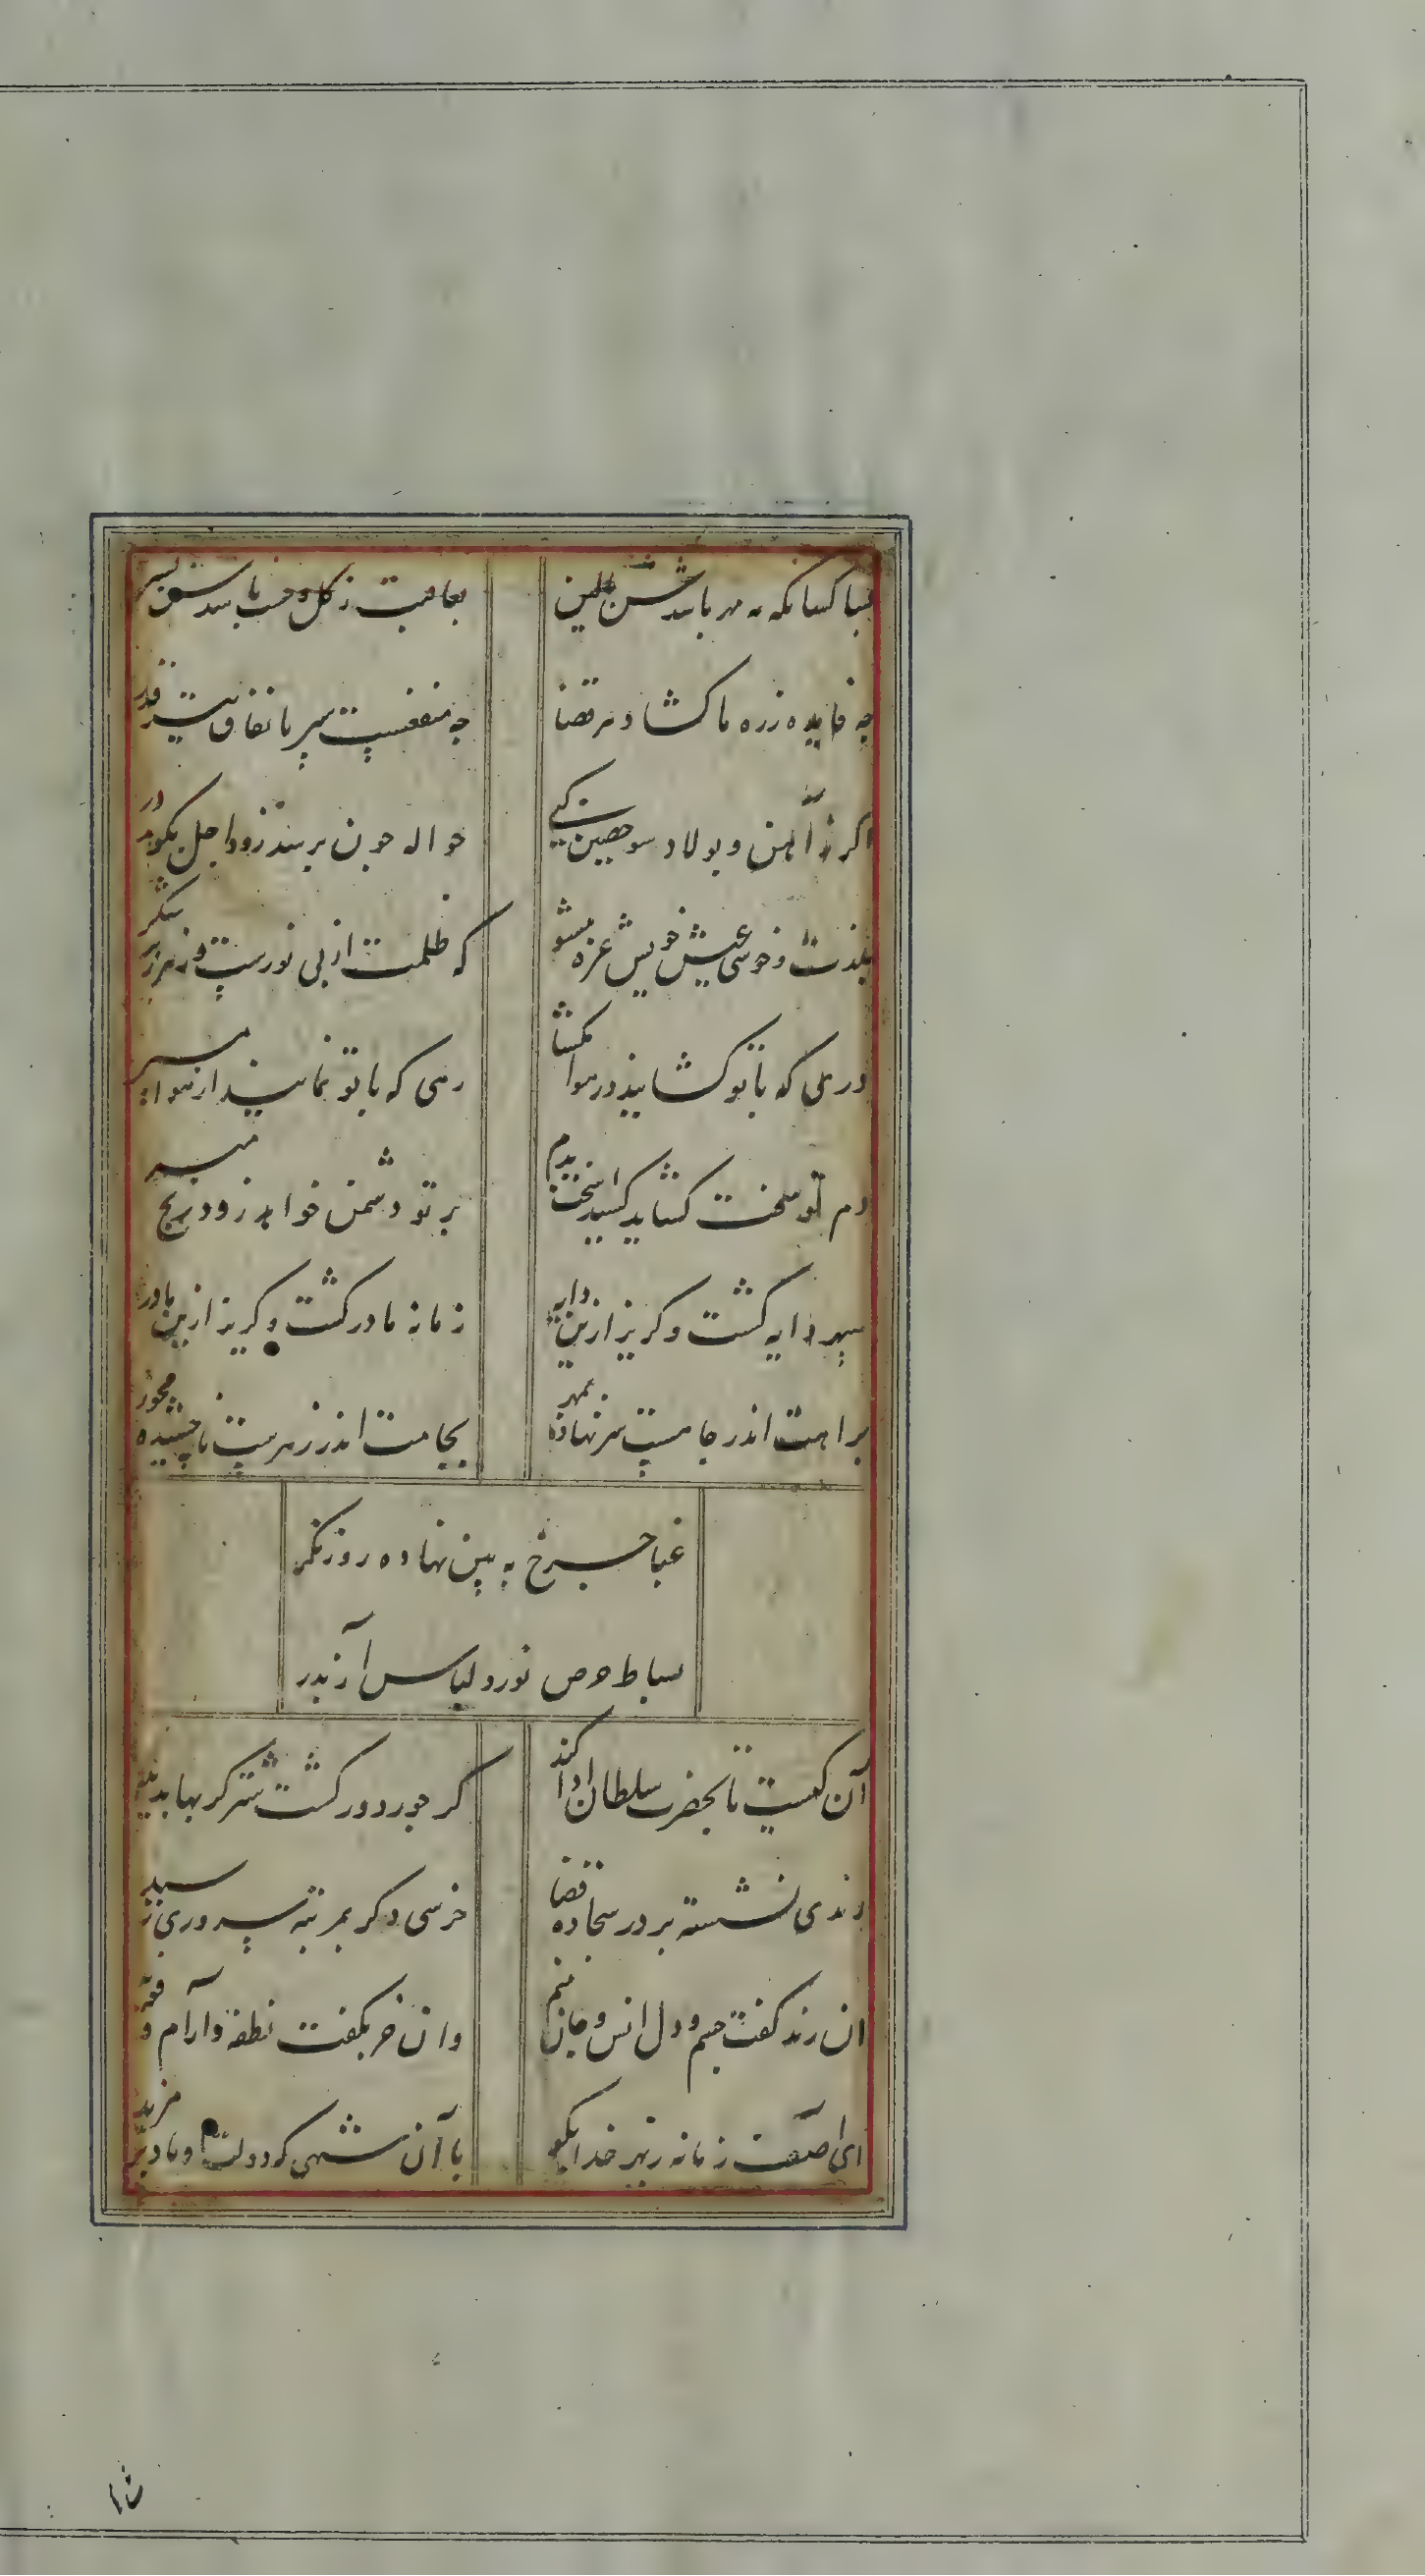 بسا کسا که به مهر باشدش بالین
بعاقبت ز گل و خشت باشدش بستر
چه فایده زره با کشاد تیر قضا
چه منفعت سپر با نفاق تیر قدر
اگر ز آهن و پولاد سو حصین کنی
حواله چون برسد زود اجل بکوبد در
بلذت و خوشی عیش خویش غره مشو
که ظلمت از پی نورست و زهر زیر شکر
دری که با تو کشایند در هوا مکشا
رهی که با تو نمایند از هوا مسپر
دم تو سخت کشاید کسید سخت بدم
بر تو دشمن خواهد زود بریج
سپهر دایه کشت و کریز ازین دایه
زمانه مادر کشت و کریز ازین مادر
براهت اندر چاهست سر نهاده بمهر
بجامت اندر زهرست ناچشیده مخور
غبار چرخ به بین نهاده روز نکر
بساط حرص نورد و لباس آز بدر
آن کیست تا بحضرت سلطان ادا کند
کز جور دور کشت شتر کربها بدید
رندی نشسته بر در سجاده قضا
خرسی دکر بمرتبه سروری رسید
ان رند کفت جسم و دل انس و جان منم
وان خر بکفت نطفه و آرام
ای آصف زمانه ز بهر خدا بکو
با آن شهی که دولت او باد بر مزید